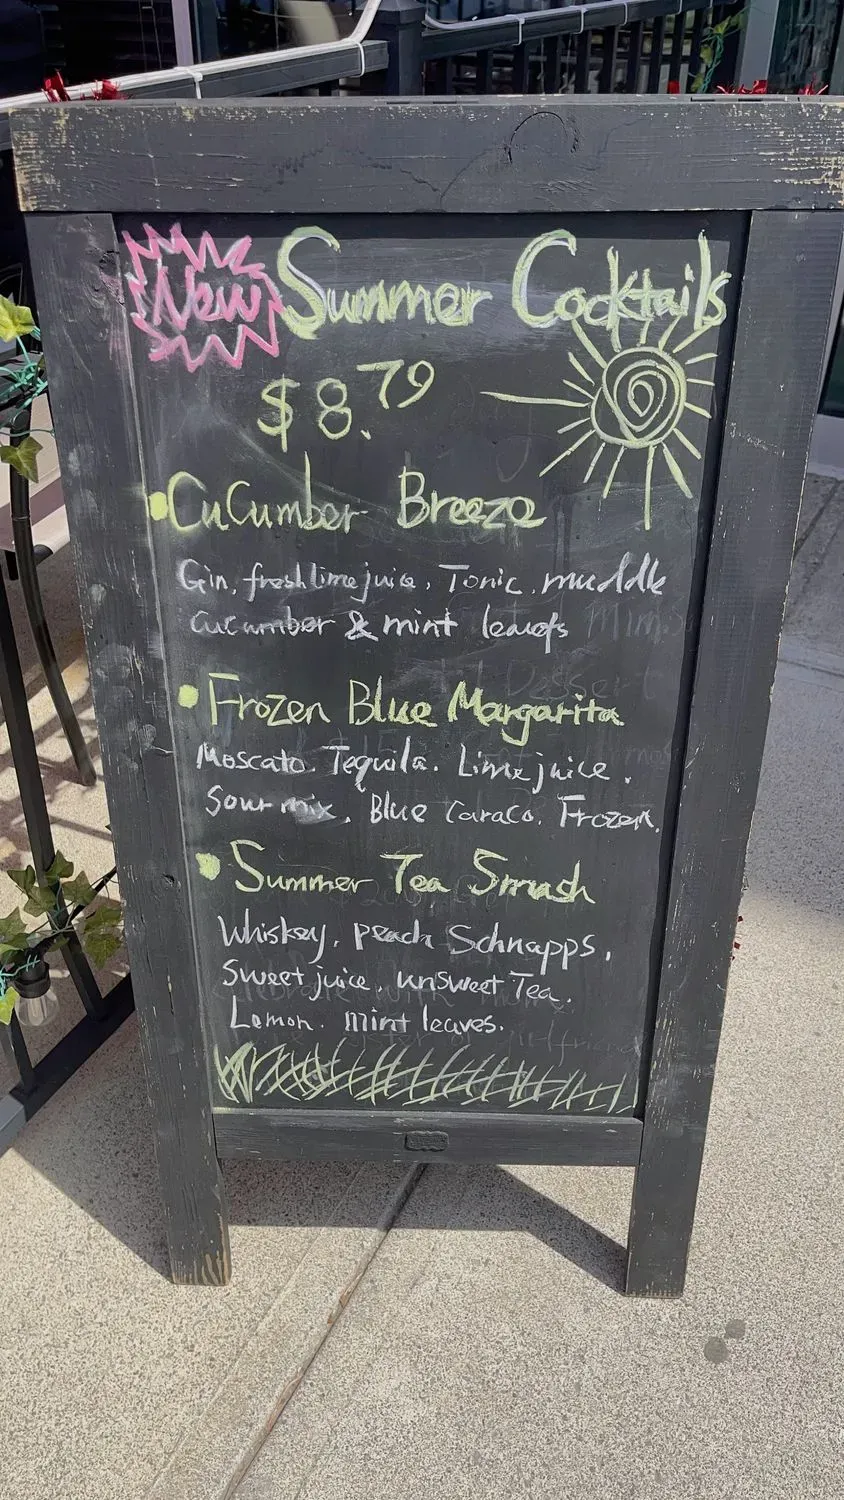 New Summer Cocktails
$8.79
Cucumber Breeze
Gin, fresh lime juice, Tonic, muddle
cucumber & mint leaves
Frozen Blue Margarita
Moscato. Tequila. Lime juice,
Sour mix, Blue Caraco. Frozen.
Summer Tea Smash
Whiskey, peach Schnapps,
Sweet juice, unsweet Tea.
Lemon. Mint leaves.